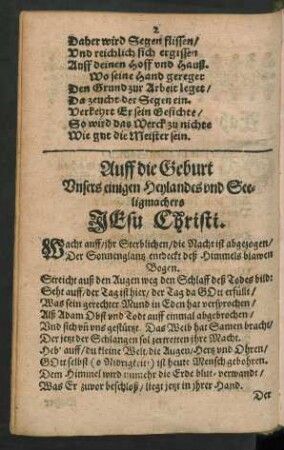 2
Daher wird Segen flissen/
Vnd reichlich sich ergissen
Auff deinen Hoff vnd Hauß.
Wo seine Hand gereget
Den Grund zur Arbeit leget/
Da zeucht der Segen ein.
Verkehrt Er sein Gesichte/
So wird das Werck zu nichte
Wie gut die Meister sein.
Auff die Geburt
Vnsers einigen Heylandes vnd See-
ligmachers
JEsu Christi.
Wacht auff/ ihr Sterblichen/ die Nacht ist abgezogen/
Der Sonnenglantz entdeckt deß Himmels blawen
Bogen.
Streicht auß den Augen weg den Schlaff deß Todes bild:
Seht auff/ der Tag ist hier/ der Tag da GOtt erfüllt/
Was sein gerechter Mund in Eden hat versprochen/
Alß Adam Obst vnd Todt auff einmal abgebrochen/
Vnd sich vñ vns gestürtzt. Das Weib hat Samen bracht/
Der jetzt der Schlangen sol zertretten jhre Macht.
Heb' auff/ du kleine Welt, die Augen/ Hertz vnd Ohren/
GOtt selbst (o Nidrigkeit) ist heute Mensch gebohren.
Dem Himmel wird nunmehr die Erde blut-verwandt/
Was Er zuvor beschloß/ liegt jetzt in jhrer Hand.
Der